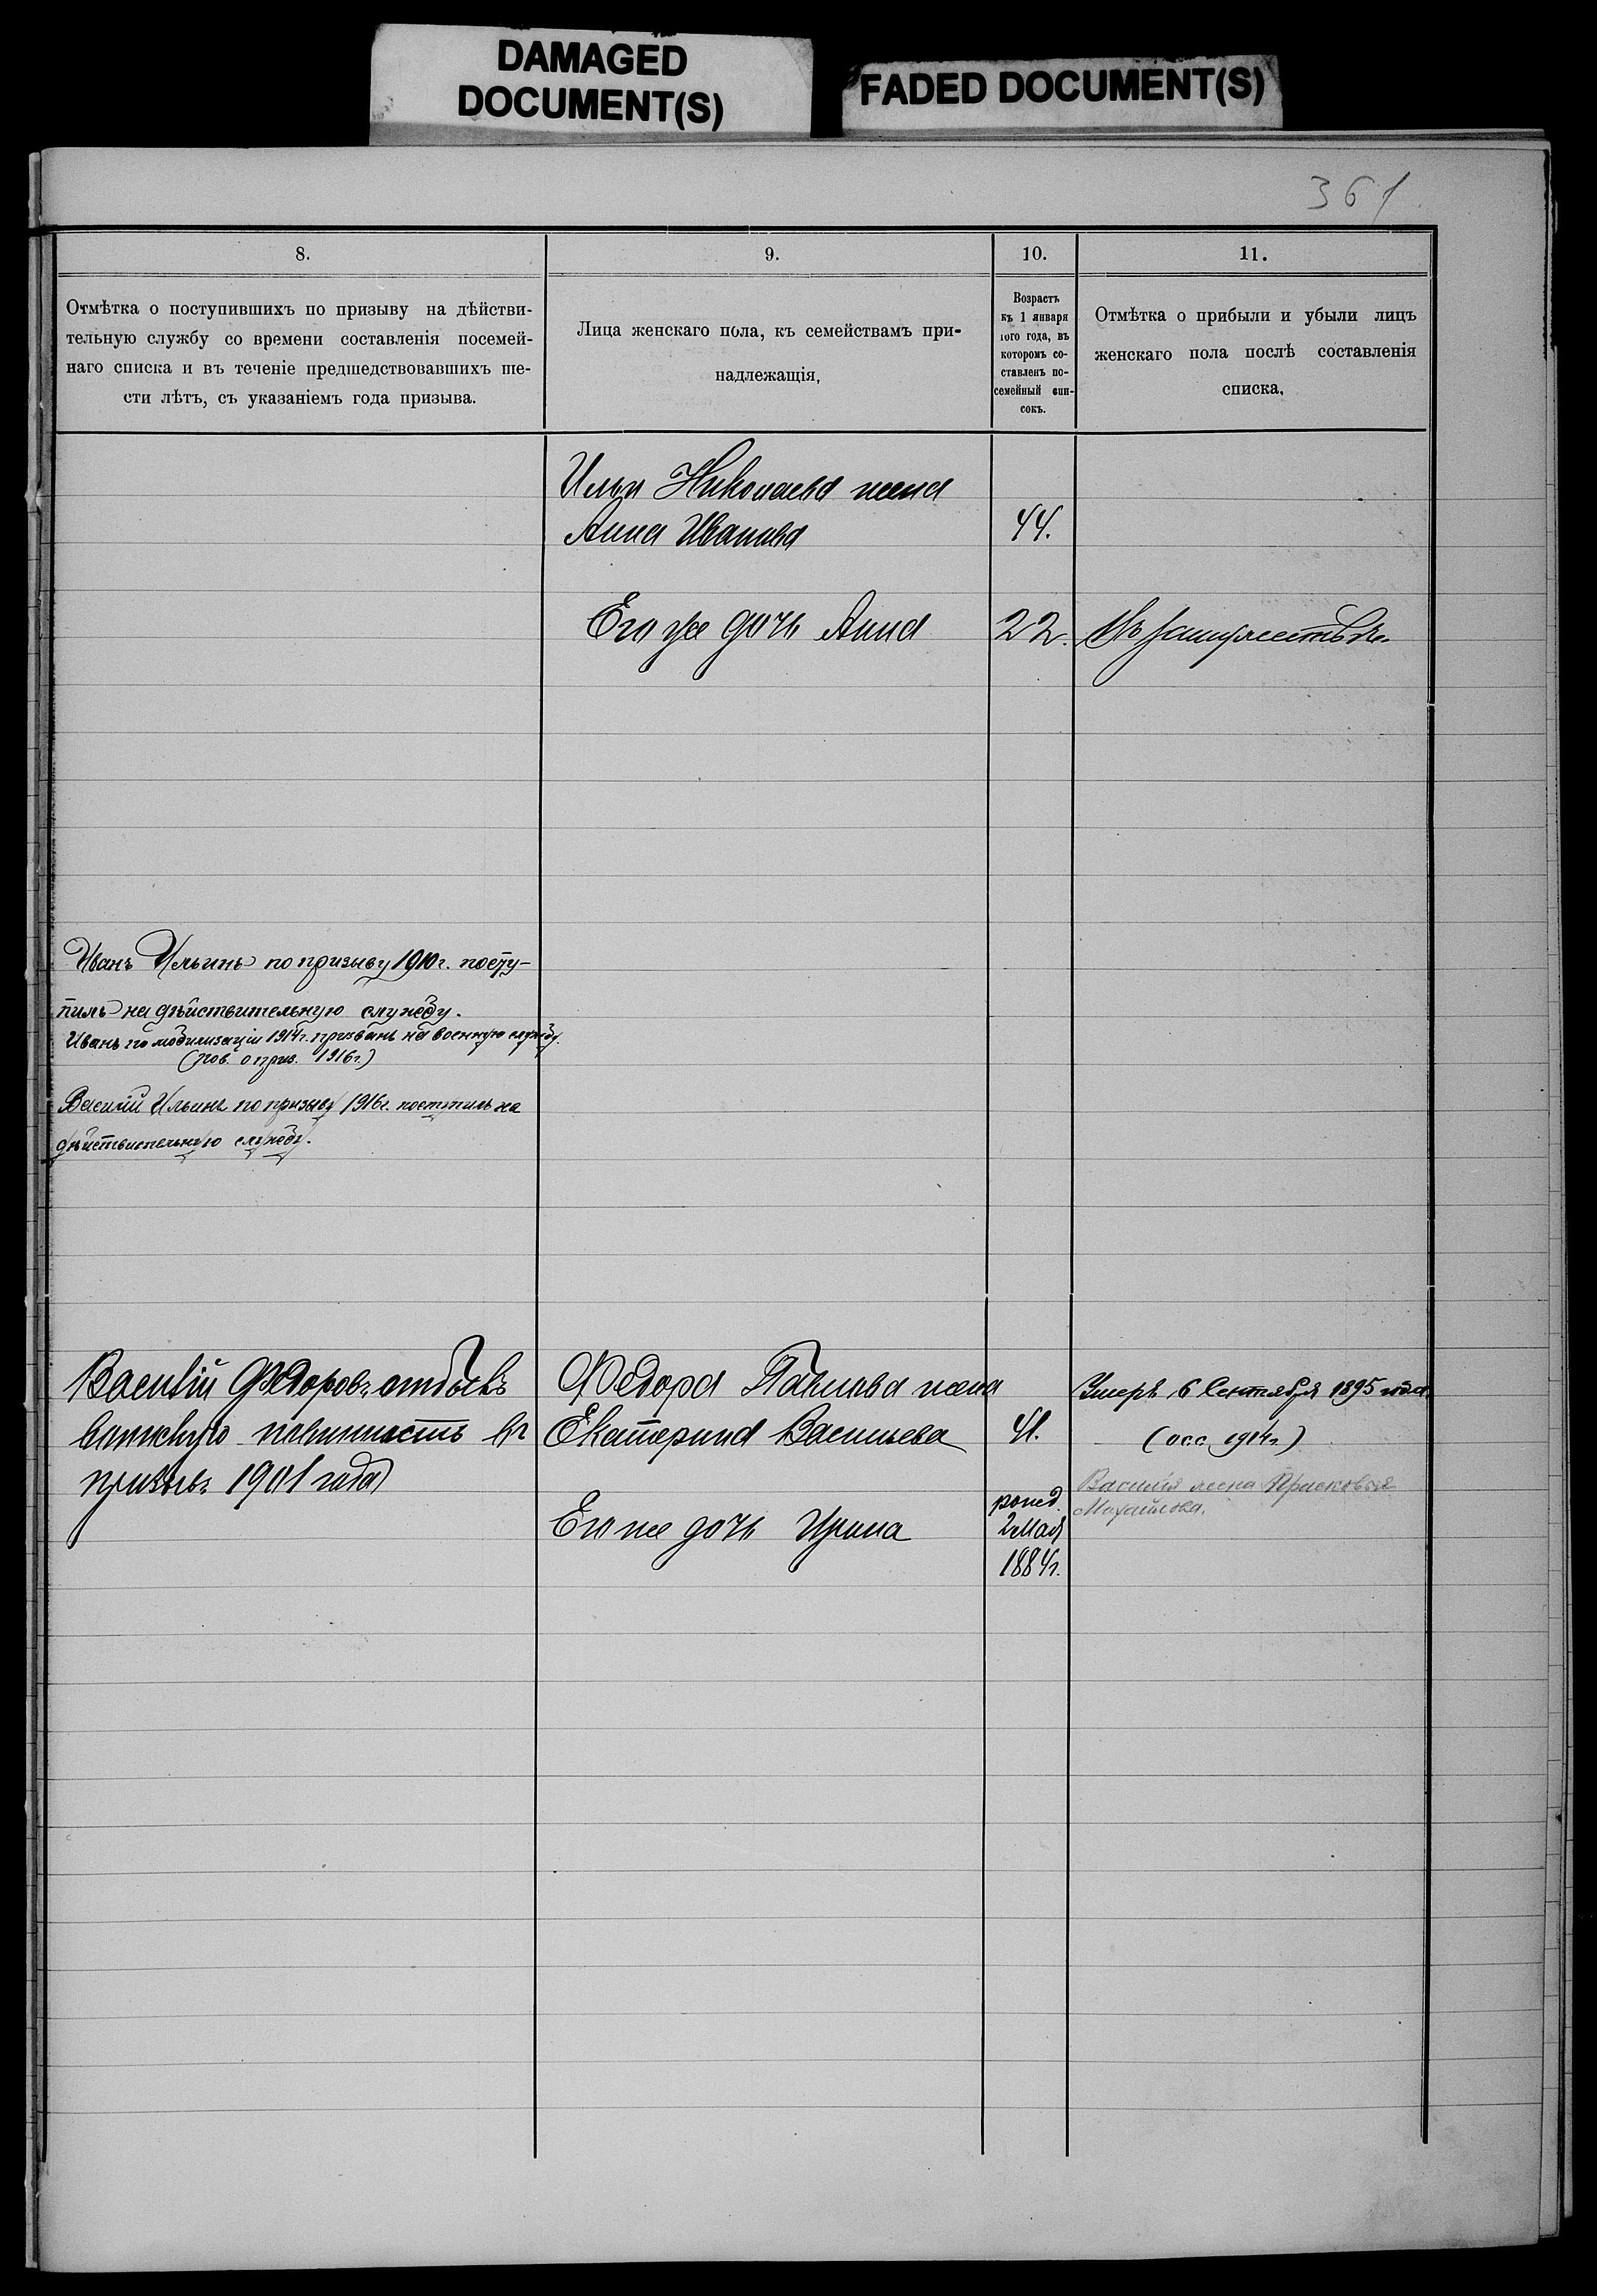 DAMAGED
DOCUMENT(S)
FADED DOCUMENT(S)
361
8.
Отмѣтка о поступившихъ по призыву на дѣйстви-
тельную службу со времени составленія посемей-
наго списка и въ теченіе предшедствовавшихъ ше-
сти лѣтъ, съ указаніемъ года призыва.
9.
Лица женскаго пола, къ семействамъ при-
надлежащія,
10.
Возрастъ
къ 1 января
того года, въ
которомъ со-
ставленъ по-
семейный спи-
сокъ.
11.
Отмѣтка о прибыли и убыли лицъ
женскаго пола послѣ составленія
списка.
Ильи Николаева жена
Анна Иванова
44.
Его же дочь Анна
22.
Въ замужествѣ
Иванъ Ильинъ по призыву 1910 г. посту-
пилъ на дѣйствительную службу.
Иванъ по мобилизаціи 1914 г. призванъ на военную службу.
(пов. о приз. 1916 г.)
Василій Ильинъ по призыву 1916 г. поступилъ на
дѣйствительную службу.
Василій Ѳедоровъ отбылъ
воинскую повинность въ
призывъ 1901 года
Федора Павлова жена
Екатерина Васильева
41.
Его же дочь Ирина
рожд.
2 Мая
1884 г.
Умеръ 6 Сентября 1895 года
(осс. 1914 г.)
Василія жена Прасковья
Михайлова.